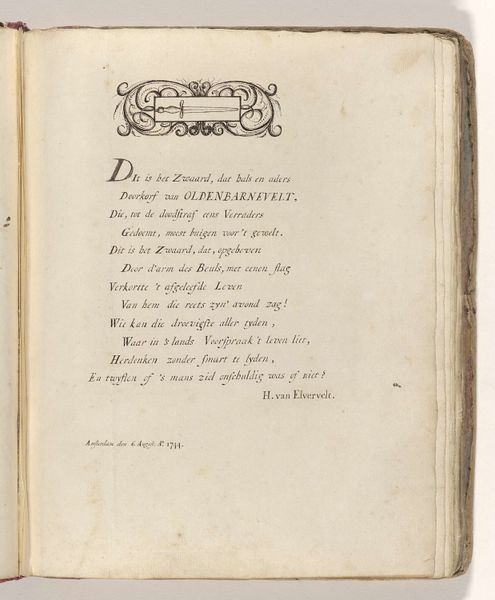 DIt is het Zwaard, dat hals en aders
Doorkorf van OLDENBARNEVELT,
Die, tot de doodstraf eens Verraders
Gedoemt, moest buigen voor't gewelt.
Dit is het Zwaard, dat, opgeheven
Door d'arm des Beuls, met eenen slag
Verkortte 't afgeleefde Leven
Van hem die reets zyn' avond zag!
Wie kan die droevigste aller tyden,
Waar in 's lands Voorspraak 't leven liet,
Herdenken zonder smart te lyden,
En twyflen of 's mans ziel onschuldig was of niet?
H. van Elvervelt.
Amsterdam den 6. August. Ao. 1744.